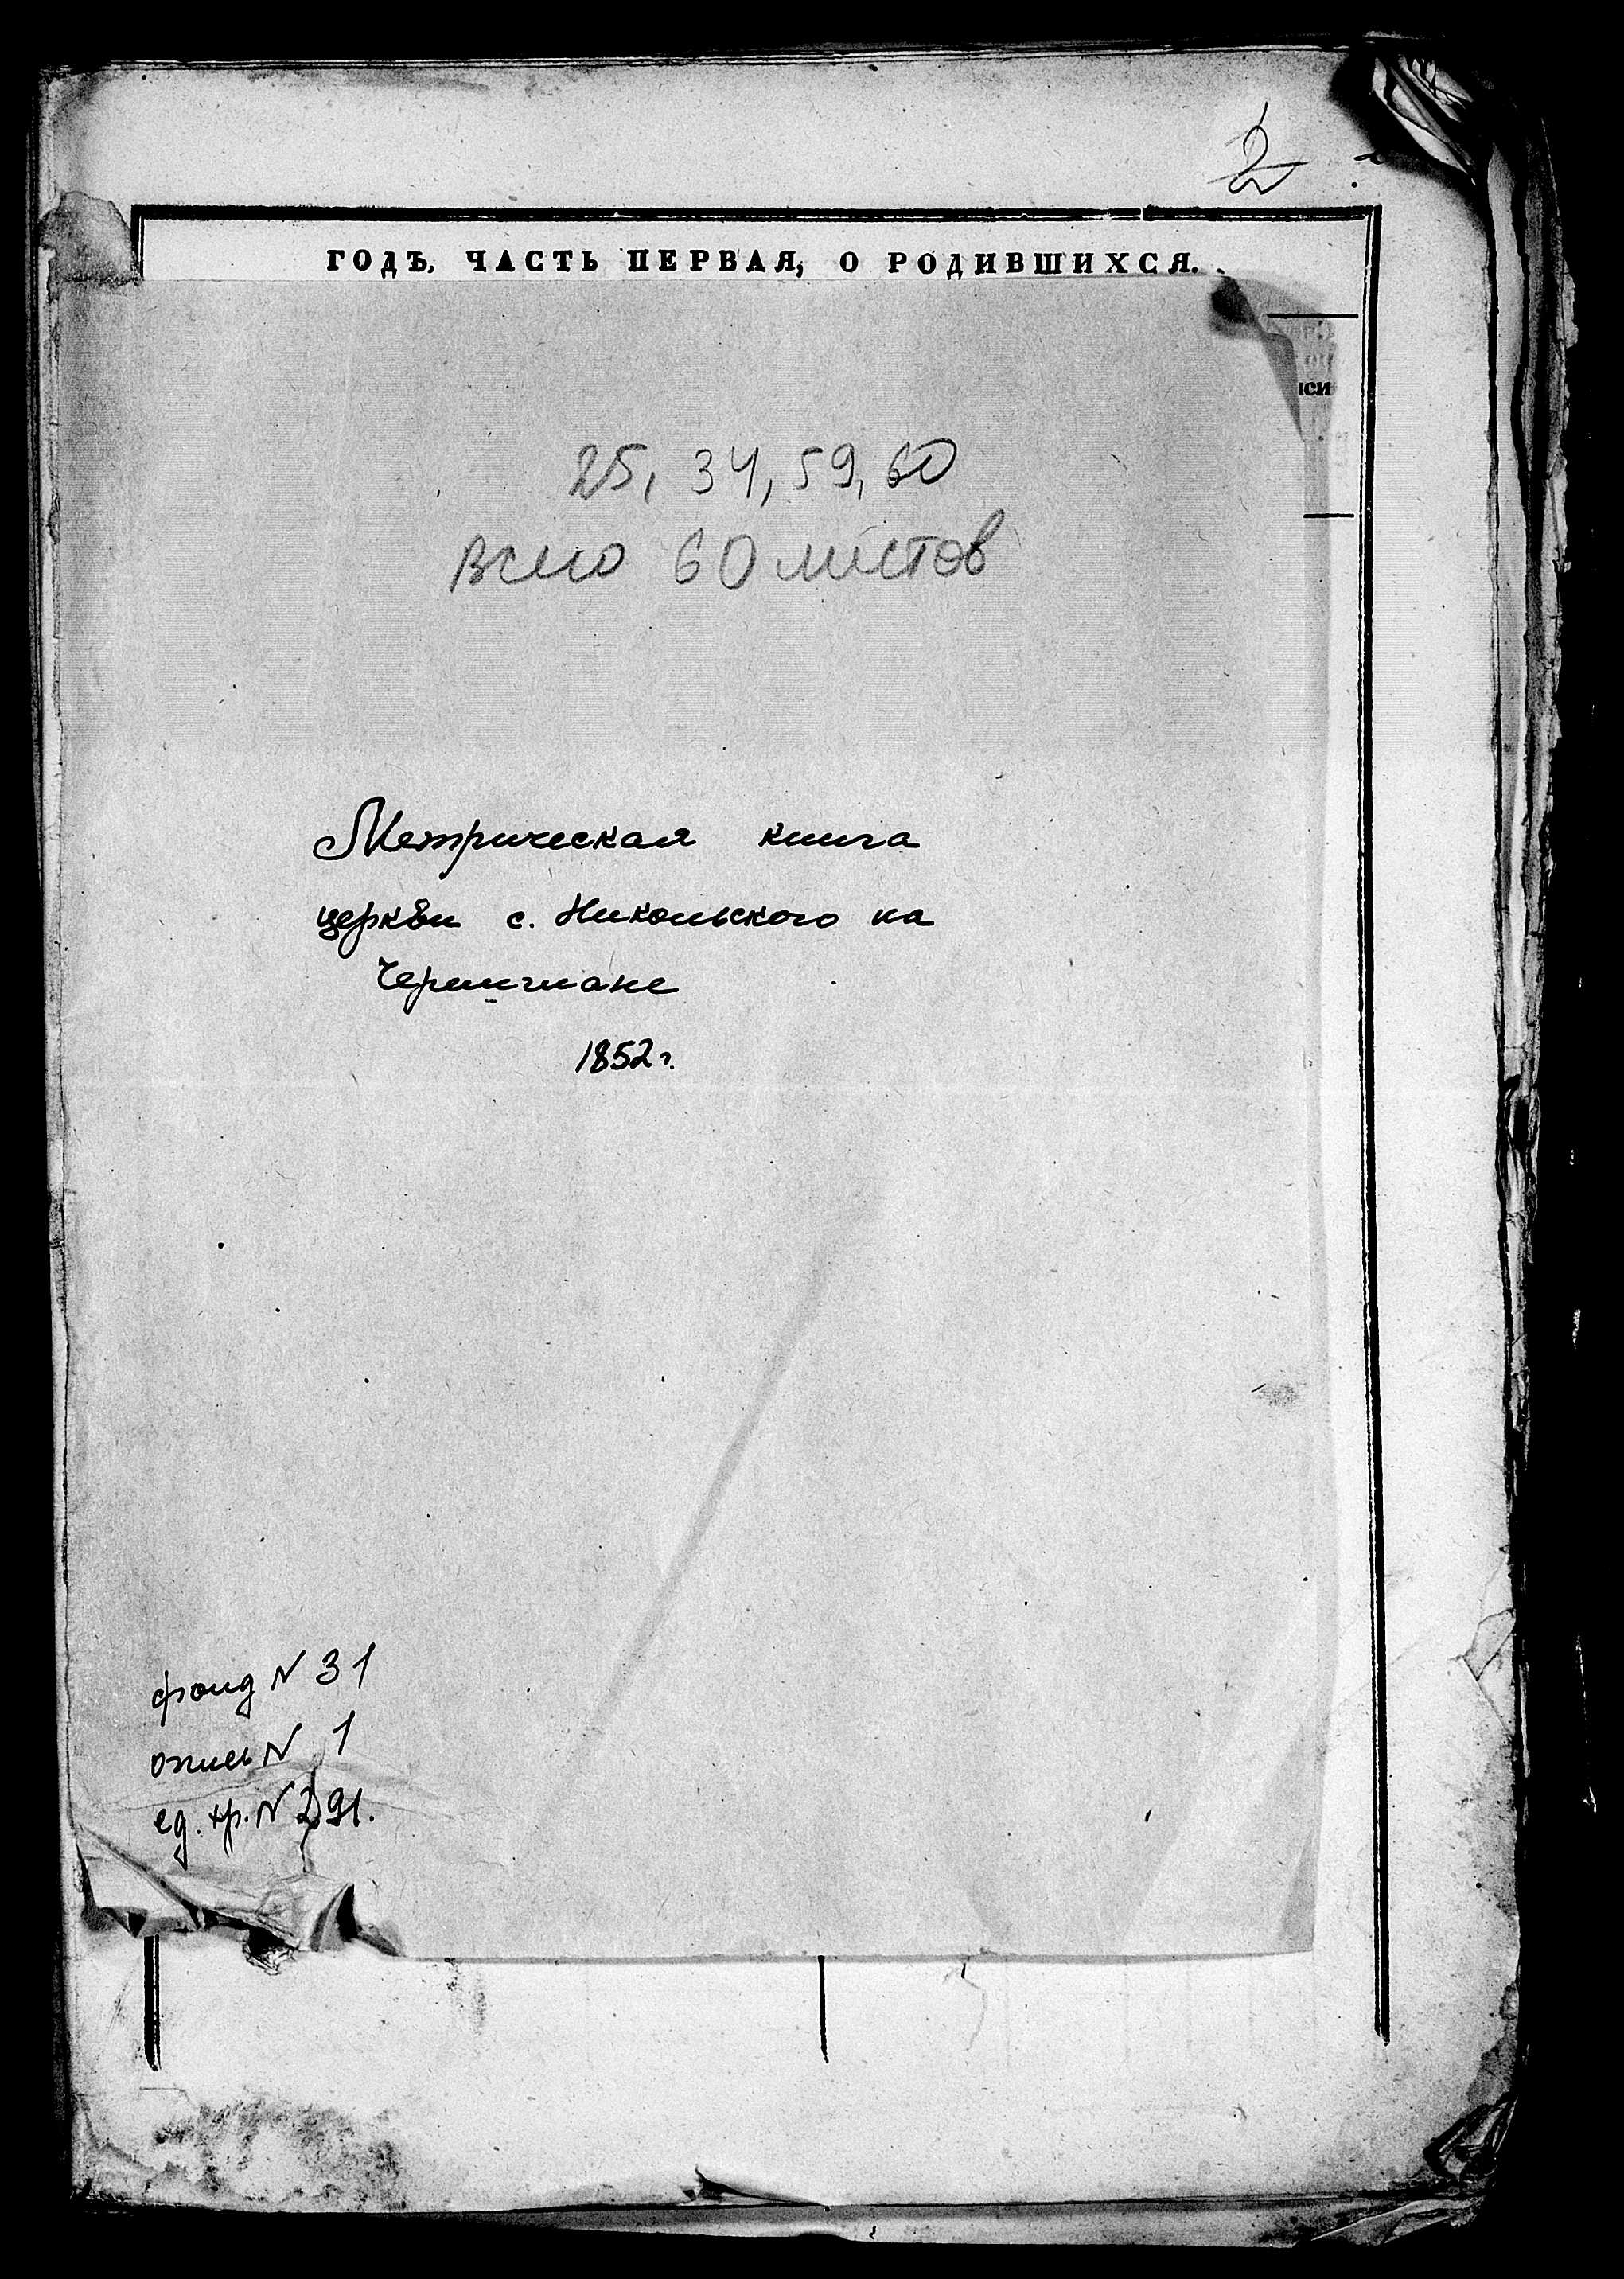 2
ГОДЪ. ЧАСТЬ ПЕРВАЯ, О РОДИВШИХСЯ.
иси
25, 34, 59, 60
всего 60 листов
Метрическая книга
церкви с. Никольского на
Черемшане
1852 г.
фонд N 31
опись N 1
ед. хр. N 291.